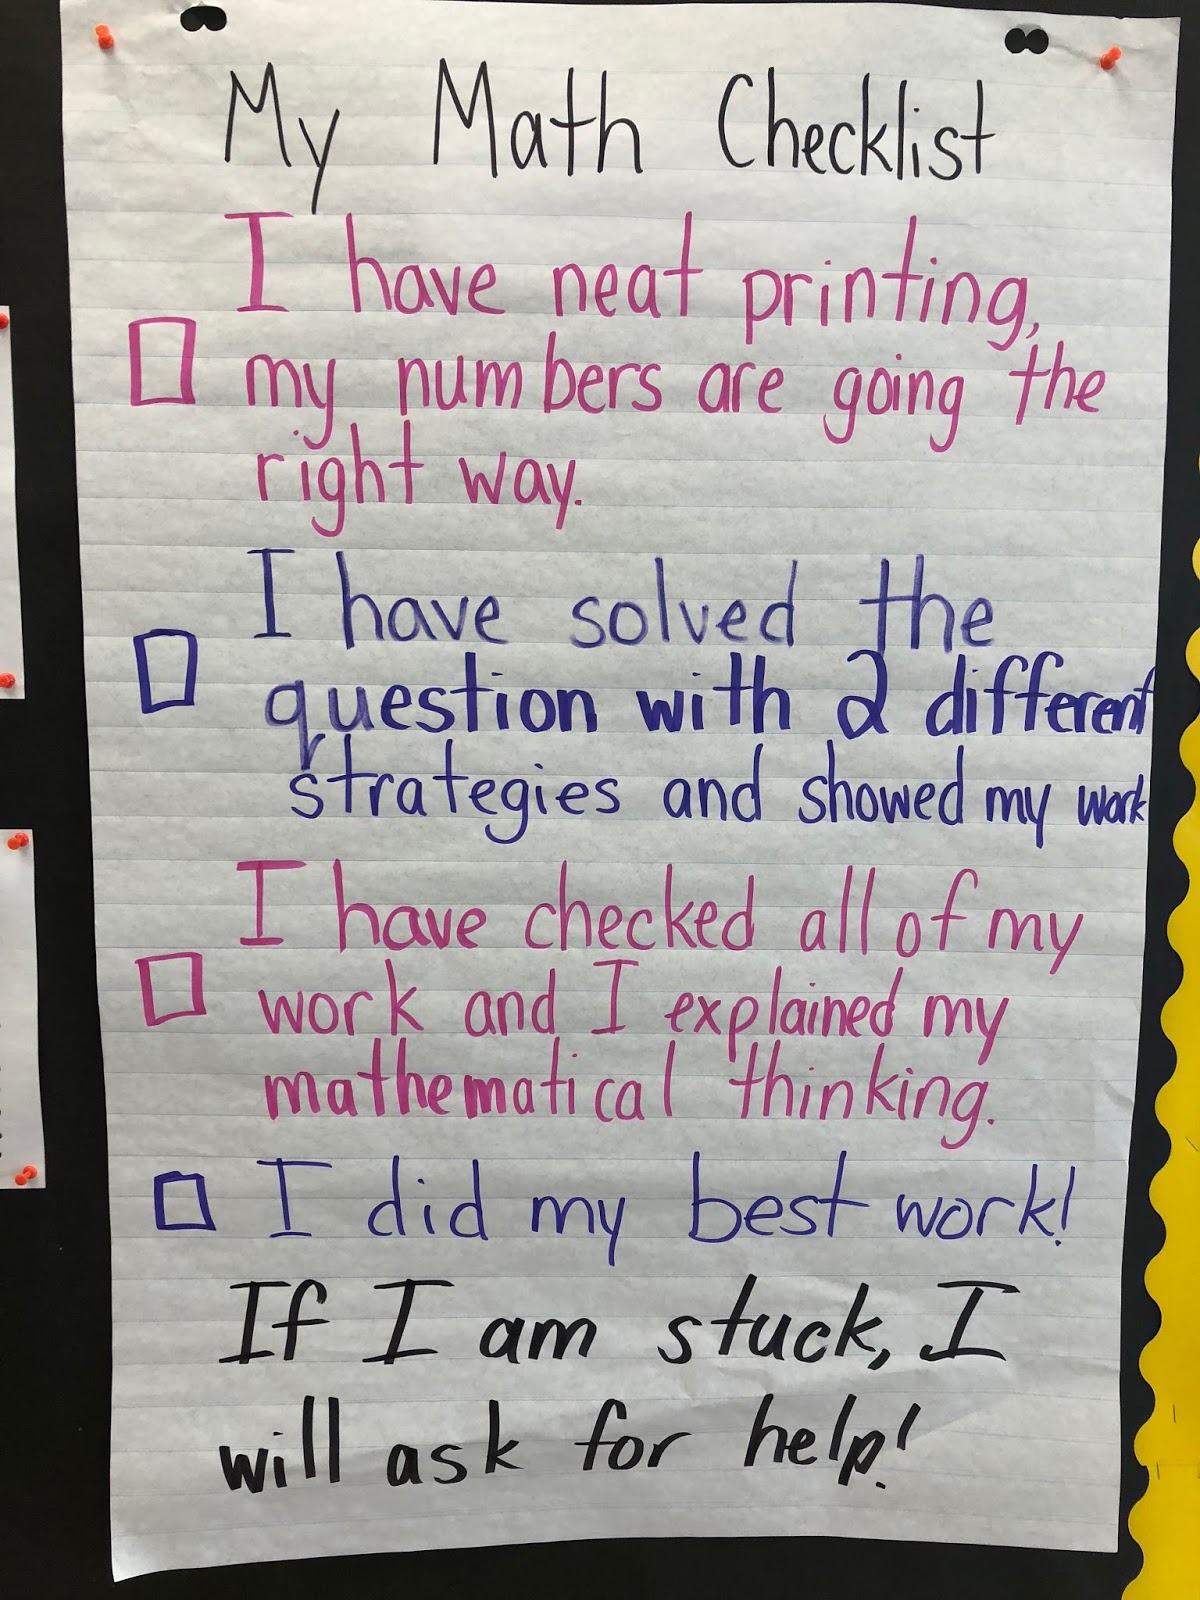 My Math Checklist
I have neat printing,
my numbers are going the
right way.
I have solved the
question with 2 different
strategies and showed my work
I have checked all of my
work and I explained my
mathematical thinking.
I did my best work!
If I am stuck, I
will ask for help!